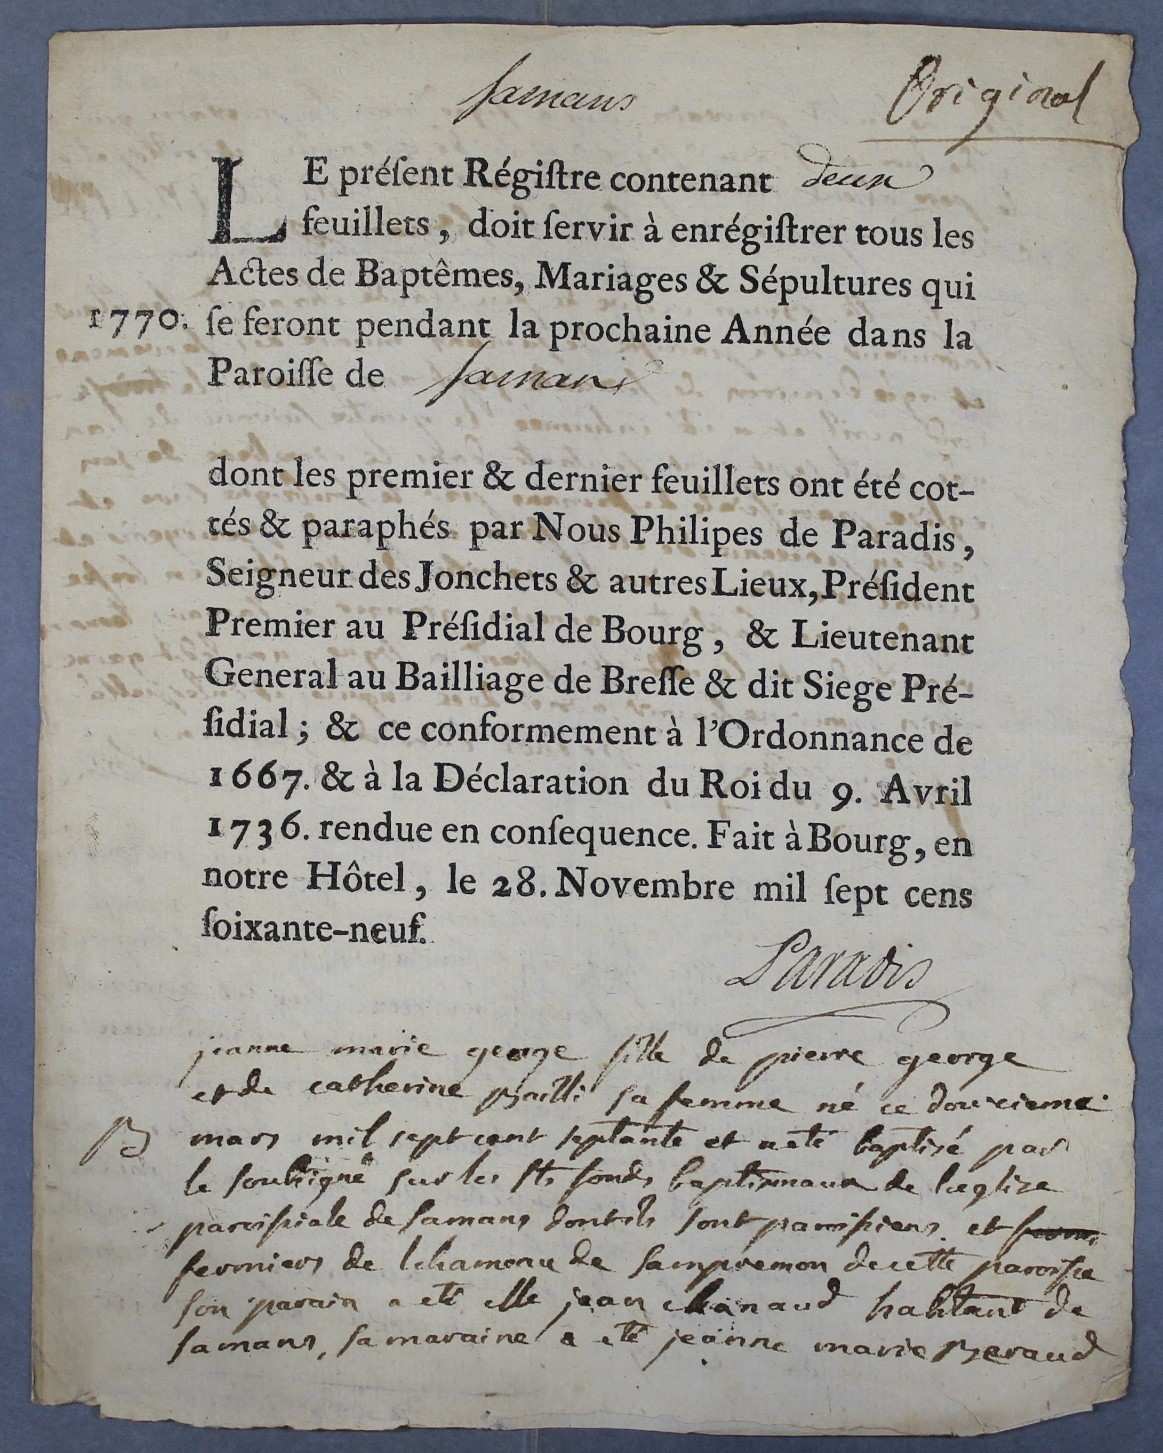 Samans
Original
LE préſent Régiſtre contenant deux
feuillets, doit ſervir à enrégiſtrer tous les
Actes de Baptêmes, Mariages & Sépultures qui
1770. ſe feront pendant la prochaine Année dans la
Paroiſſe de Samans
dont les premier & dernier feuillets ont été cot-
tés & paraphés par Nous Philipes de Paradis,
Seigneur des Jonchets & autres Lieux, Préſident
Premier au Préſidial de Bourg, & Lieutenant
General au Bailliage de Breſſe & dit Siege Pré-
ſidial; & ce conformement à l'Ordonnance de
1667. & à la Déclaration du Roi du 9. Avril
1736. rendue en conſequence. Fait à Bourg, en
notre Hôtel, le 28. Novembre mil ſept cens
ſoixante-neuf.
Paradis
jeanne marie george fille de pierre george
et de catherine Bailli sa femme né ce douzieme
B mars mil sept cent septante et a eté baptisé par
le soubsigné sur les sts fonds baptismaux de l'eglize
paroissiale de Samans dont ils sont paroissiens et
fermiers de de cette paroisse
son parain a eté jean habitant de
samans, sa maraine a eté jeanne marie Beraud